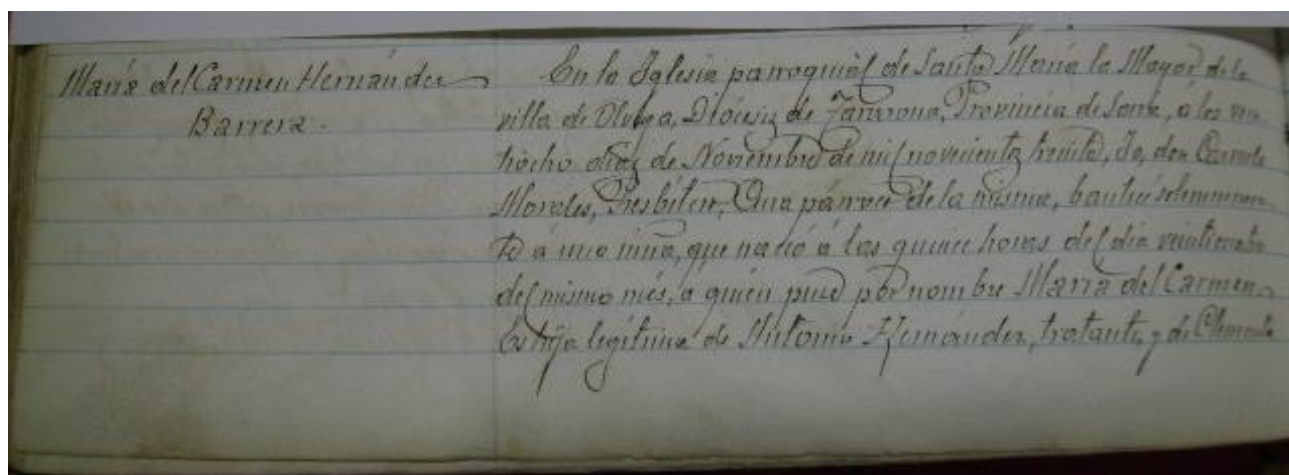 María del Carmen Hernández
Barrera.
En la Iglesia parroquial de Santa María la Mayor de la
villa de Olvega, Diócesis de Tarazona, Provincia de Soria, á los vein-
tiocho días de Noviembre de mil novecientos treinta, Yo, don
Morales, Presbítero, Cura párroco de la misma, bauticé solemnemen-
te á una niña, que nació á las quince horas del día veinticuatro
del mismo més, a quién puse por nombre María del Carmen.
Es hija legítima de Antonio Hernández, tratante, y de